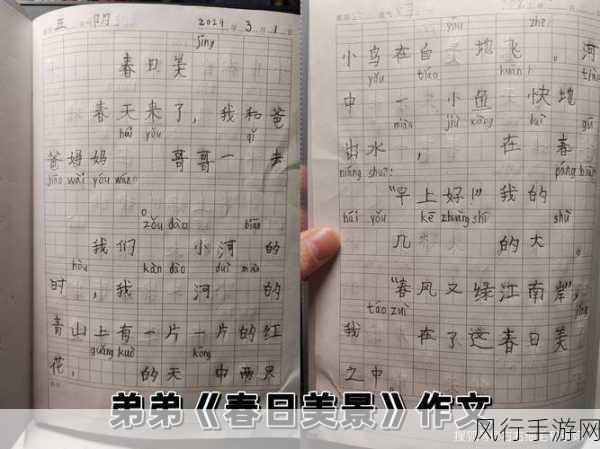 2024 3 1
jǐng
春日美
春天来了，我和爸
hái yǒu qí
爸妈妈 哥哥一 去
jiāo wài yóu wán
zǒu dào biān
我们 小河 的
hòu kàn dào duì miàn
时，我 河 的
青山上有一片一片的红
guǎng kuò kōng
花， 的天 中两只
yóu zhe
小鸟在自 地飞 。河
yǒu tiáo huān
中一 小鱼 快地
miàn jiù xiàng
出水， 在 春
niáng shuō
“早上好！”我的
hái yǒu kē zhuàng shí shù
几 的大 。
“春风又绿江南岸”，
táo zuì
我 在了这春日美
之中
弟弟《春日美景》作文
风行手游网